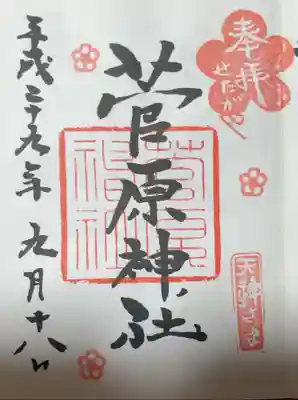 奉拝
せたがや
天神さま
菅原神社
菅原神社
平成二十九年 九月十八日